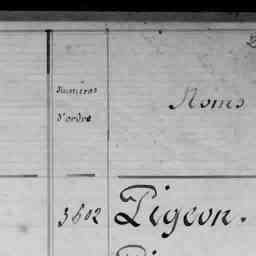 Numéros
d'ordre
Noms
3602 Pigeon.